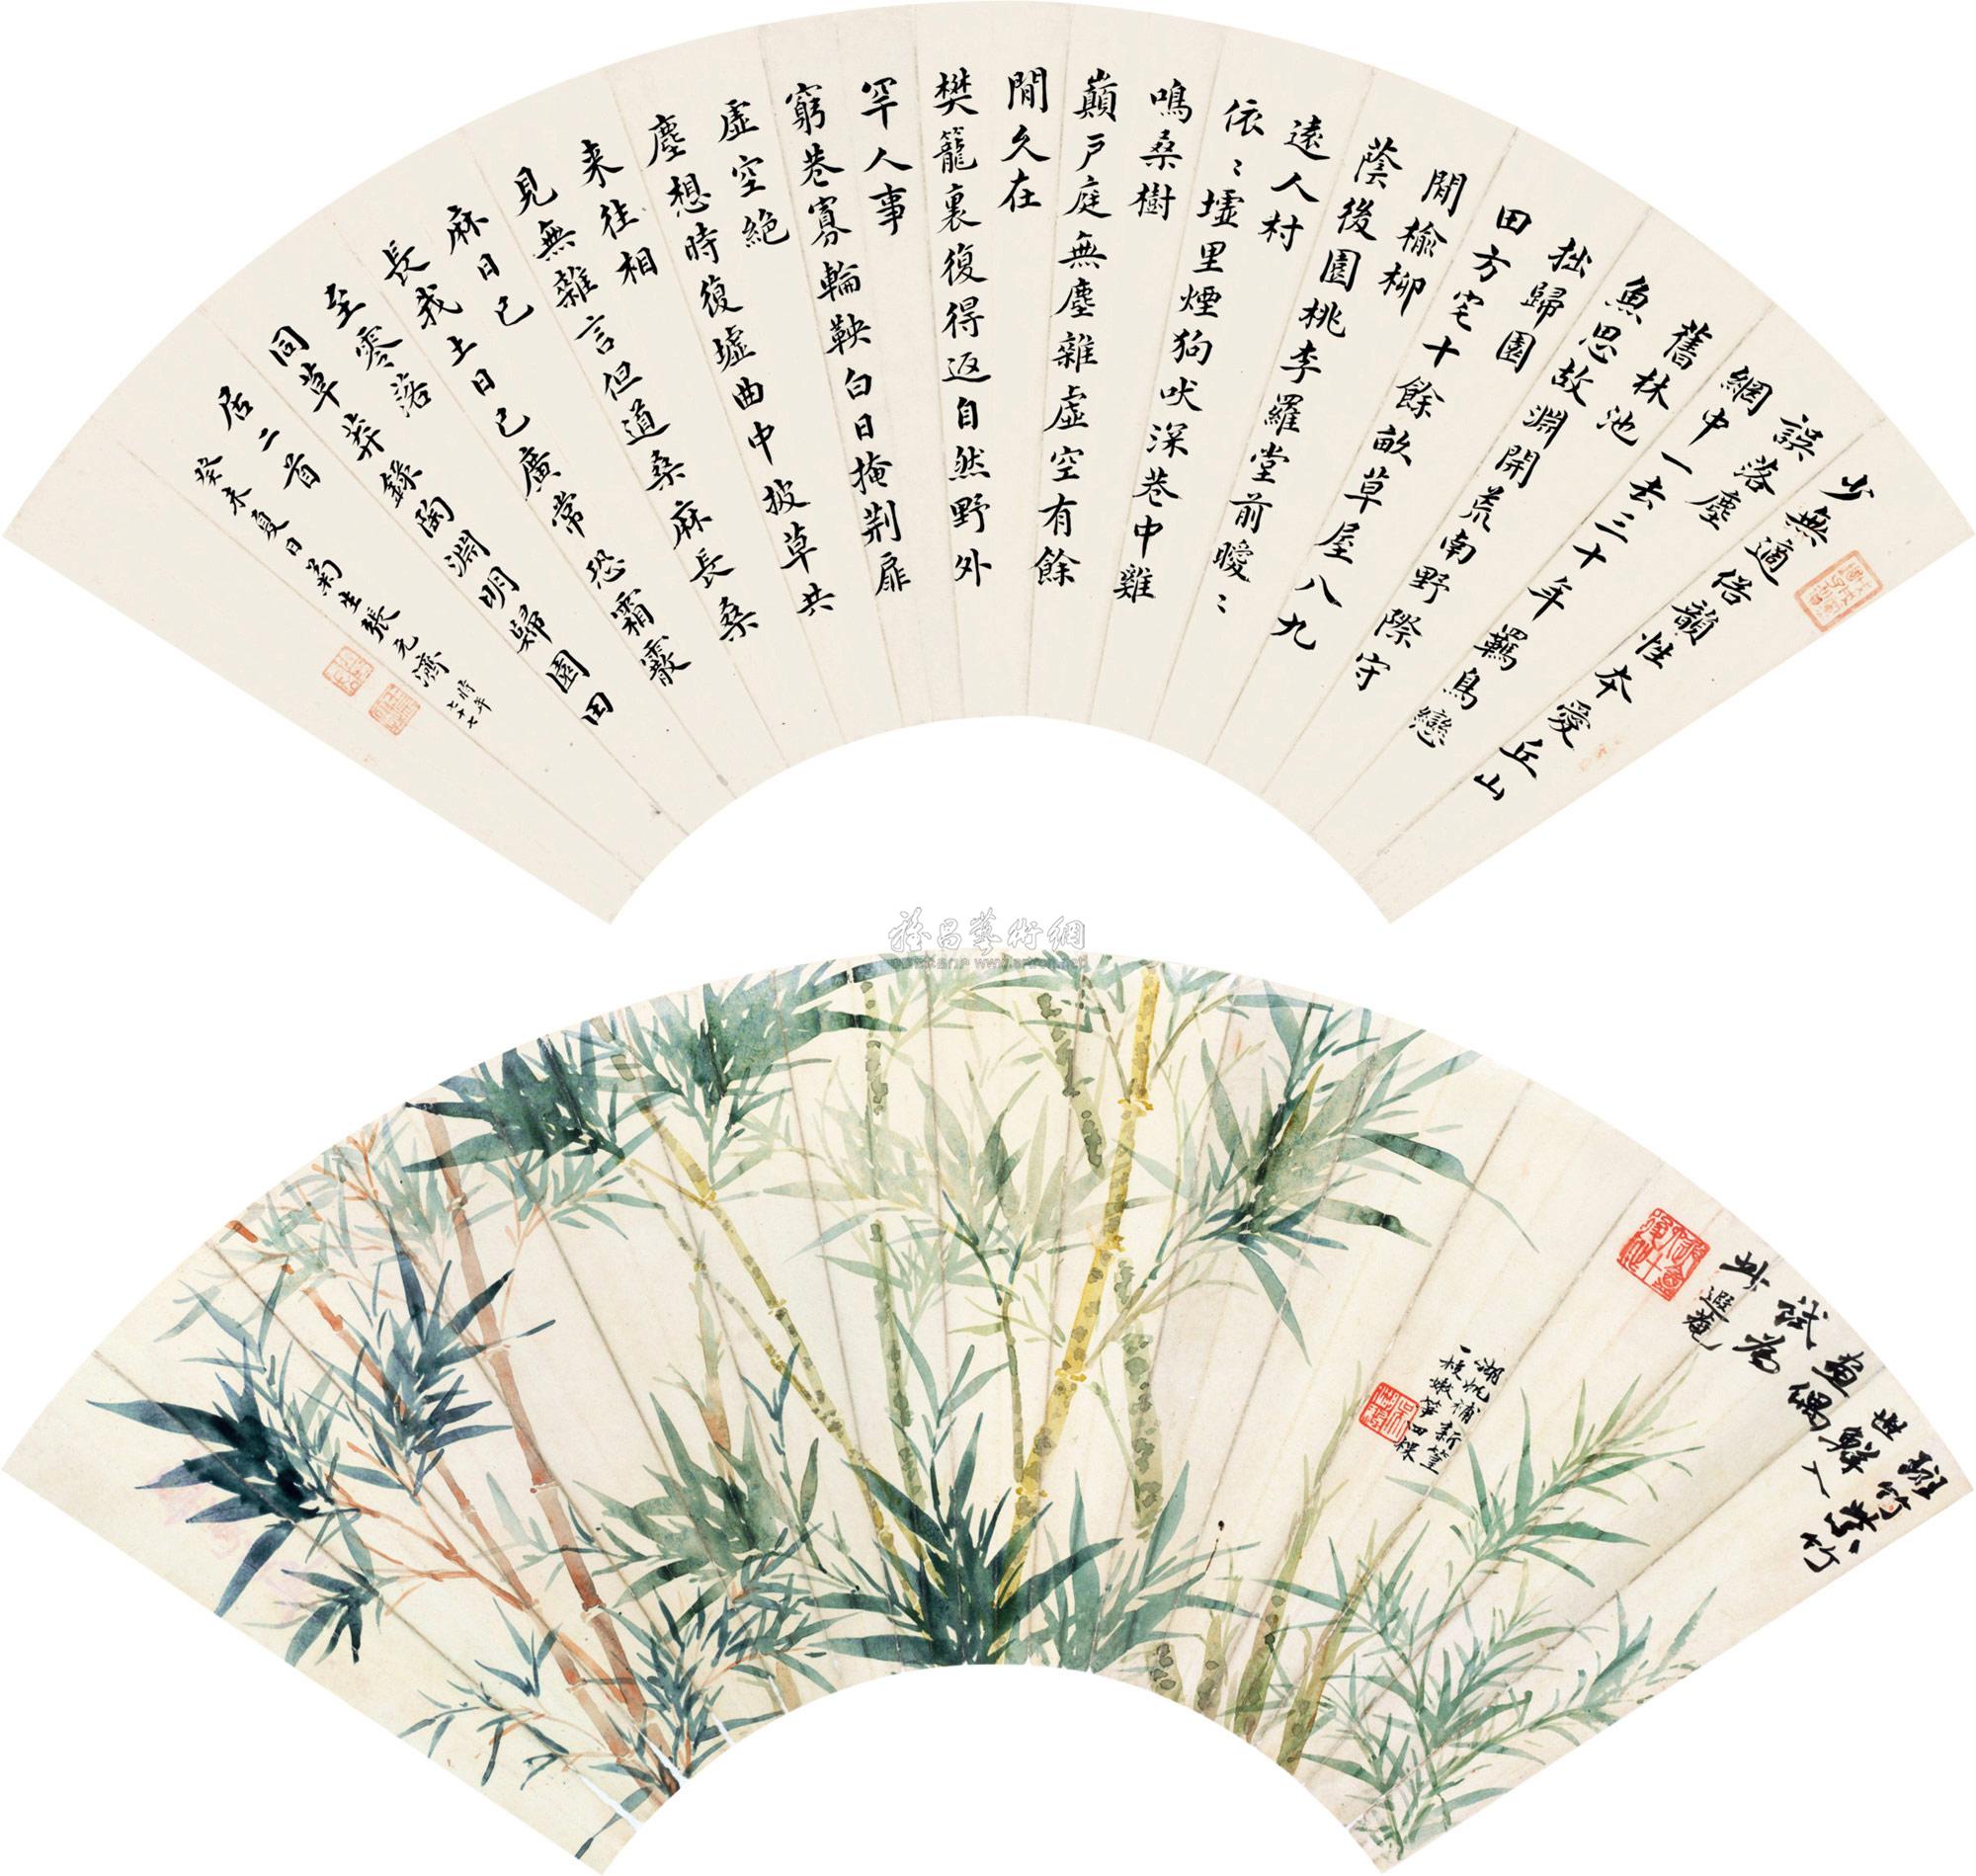 少無適俗韻性本愛丘山
誤落塵
網中一去三十年羈鳥戀
舊林池
魚思故淵開荒南野際守
拙歸園
田方宅十餘畝草屋八九
閒榆柳
蔭後園桃李羅堂前曖〻
遠人村
依〻墟里煙狗吠深巷中雞
鳴桑樹
巔戶庭無塵雜虛空有餘
閒久在
樊籠裏復得返自然野外
罕人事
窮巷寡輪鞅白日掩荊扉
虛空絕
塵想時復墟曲中披草共
来往相
見無雜言但道桑麻長桑
麻日已
長我土日已廣常恐霜霰
至零落
同草莽錄陶淵明歸園田
居二首
癸未夏日菊生張元濟時年七十七
雅昌藝術網
www.artron.net
斑竹紫竹
世鮮入
畫偶
試為
此遐菴
湖帆補新篁
一枝嫩筍四株